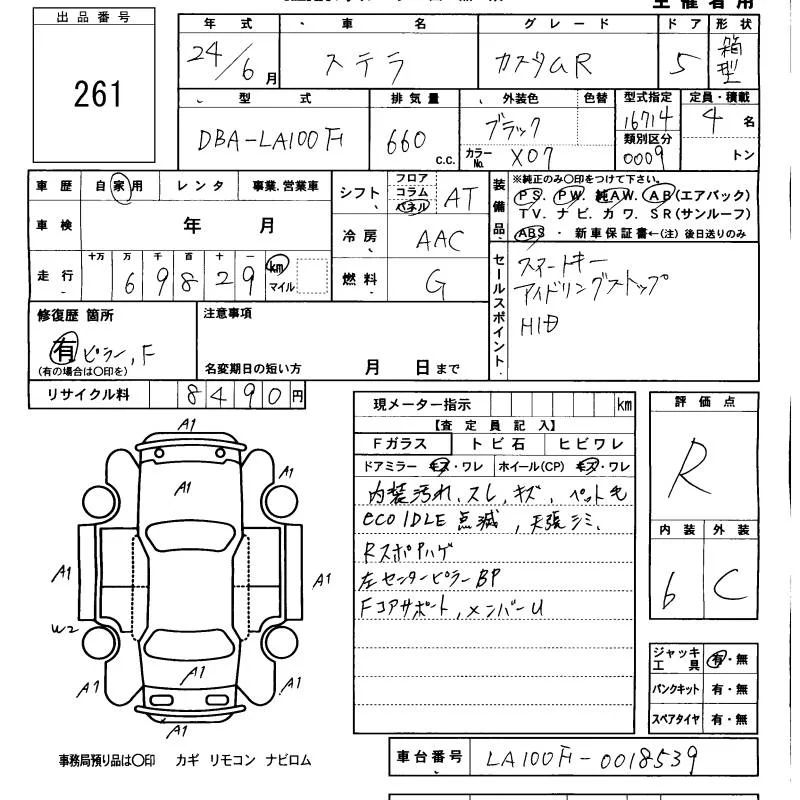 主催者用
出品番号
261
年式 車名 グレード ドア 形状
24/6月 ステラ カスタムR 5 箱型
型式 排気量 外装色 色替 型式指定 定員・積載
DBA-LA100F 660 c.c. ブラック 16714 4名
カラーNo. X07 類別区分 0009 トン
車歴 自家用 レンタ 事業.営業車
車検 年 月
走行 十万 万 千 百 十 一
69829 km マイル
シフト フロア コラム パネル AT
冷房 AAC
燃料 G
装備品
※純正のみ〇印をつけて下さい。
PS. PW. 純AW. AB(エアバック)
TV. ナビ. カワ. SR(サンルーフ)
ABS ・ 新車保証書←(注) 後日送りのみ
セールスポイント
スマートキー
アイドリングストップ
HID
修復歴 箇所
有 ピラー, F
(有の場合は〇印を)
注意事項
名変期日の短い方 月 日まで
リサイクル料 8490円
現メーター指示 km
【査定員記入】
Fガラス トビ石 ヒビワレ
ドアミラー キズ・ワレ ホイール(CP) キズ・ワレ
内装汚れ、スレ、キズ、ペット毛
eco IDLE 点滅, 天張シミ、
Rスポハゲ
左センターピラーBP
Fコアサポート, メンバーU
評価点
R
内装 外装
6 C
ジャッキ 工具 有・無
パンクキット 有・無
スペアタイヤ 有・無
A1
A1
A1
A1
A1
A1
W2
A1
A1
A1
A1
事務局預り品は〇印 カギ リモコン ナビロム
車台番号 LA100F-0018539